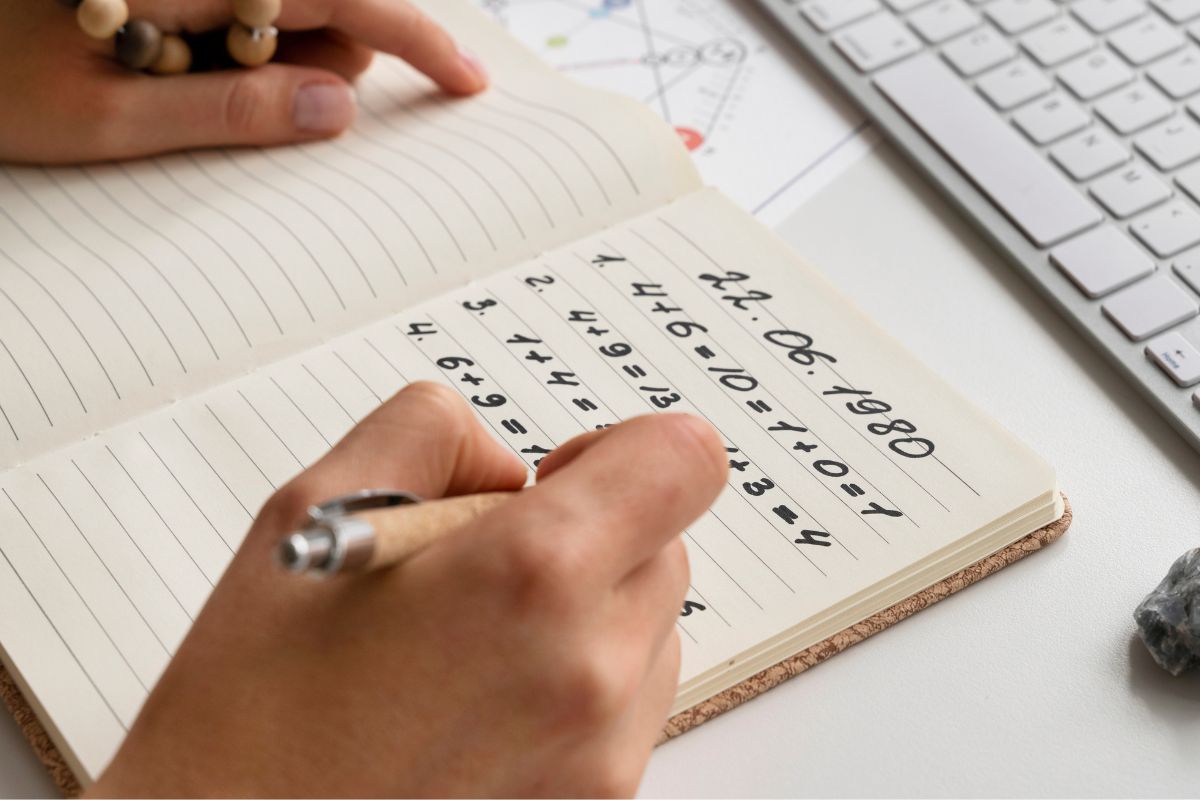 22.06.1980
1. 4+6=10=1+0=1
2. 4+9=13 1+3=4
3. 1+4= 5
4. 6+9=1